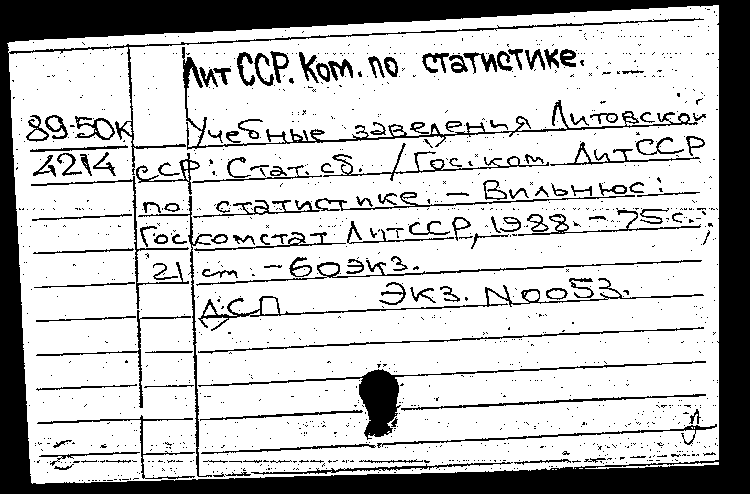 Лит ССР. Ком. по статистике.
89-50К Учебные заведения Литовской
4214 ССР: Стат. сб. / Гос. ком. ЛитССР
по статистике. — Вильнюс:
Госкомстат ЛитССР, 1988. — 75 с.;
21 см. — 60 экз.
ДСП Экз. N 0053.